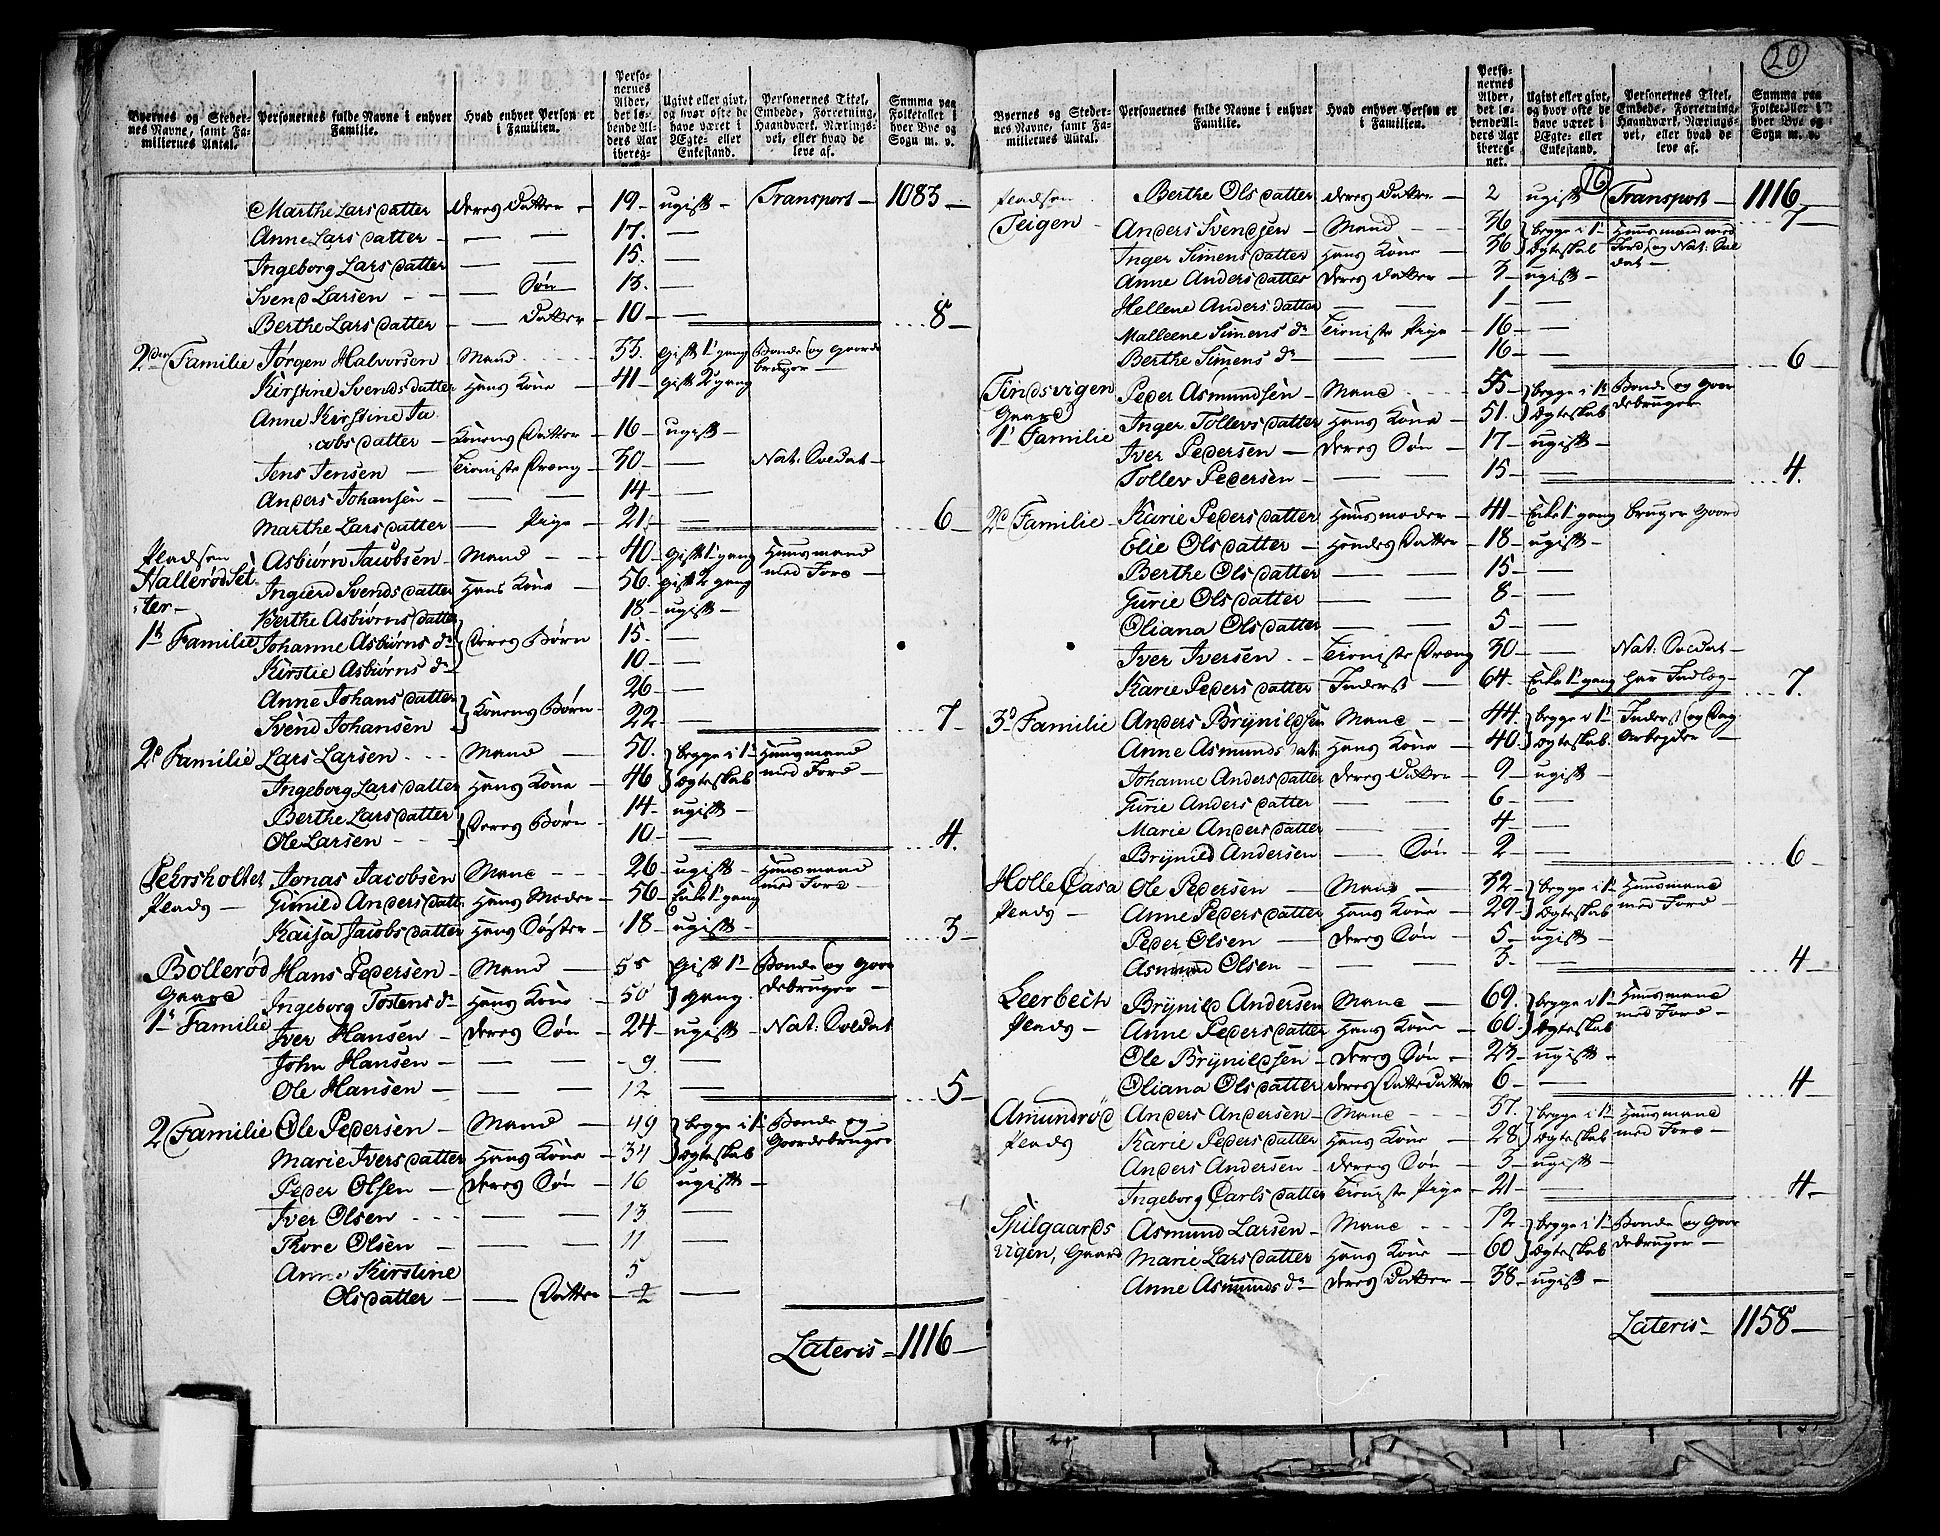 Byernes og Stedernes Navne, samt Familiernes Antal. | Personernes fulde Navne i enhver Familie. | Hvad enhver Person er i Familien. | Personernes Alder, det løbende Alders Aar iberegnet. | Ugivt eller givt, og hvor ofte de have været i Ægte- eller Enkestand. | Personernes Titel, Embede, Forretning, Haandværk, Næringsvei, eller hvad de leve af. | Summa paa Folketallet i hver Bye og Sogn m. v.
Marthe Larsdatter deres Datter - 19 - ugift - Transport - 1083 -
Anne Larsdatter - — — 17. —
Ingeborg Larsdatter — — 15. —
Svend Larsen - — Søn 13. —
Berthe Larsdatter — Datter - 10 — .... 8 -
2den Familie Jørgen Halvorsen Mand 33. gift 1r gang Bonde og Gaardebruger
Kirstine Svendsdatter Hans Kone - 41 - gift 2 gang
Anne Kirstine Ja
cobsdatter - Konens Datter - 16 - ugift -
Jens Jensen - Tieniste Dræng - 30 - — Nat: Soldat -
Anders Johansen - — — 14 - —
Marthe Larsdatter — Pige - 21 — .... 6 -
Pladsen Asbiørn Jacobsen Mand - 40 gift 1r gang Huusmand med Jord
Hallerød Set Ingierd Svendsdatter Hans Kone - 56. gift 2 gang
ter - Berthe Asbiørnsdatter 18 - ugift -
1r Familie Johanne Asbiørns dr } deres Børn 15. —
Kirstie Asbiørns dr 10 - —
Anne Johansdatter } Konens Børn - 26 - —
Svend Johansen 22 - — .... 7 -
2d Familie Lars Larsen Mand - 50. } begge i 1r Ægteskab Huusmand med Jord -
Ingeborg Larsdatter Hans Kone - 46
Berthe Larsdatter } deres Børn - 14 - ugift -
Ole Larsen 10 - — .... 4.
Pehrsholtet Jonas Jacobsen Mand - 26 - ugift - Huusmand med Jord -
Plads - Gunild Andersdatt. Hans Moder - 56 - Enke 1r gang
Kaisa Jacobsdatter Hans Søster - 18 ugift - .... 3 -
Bollerød Hans Pedersen - Mand - 55 gift 1r Bonde og Gaardebruger -
Gaard Ingeborg Tostens dr Hans Kone - 50 } gang.
1r Familie Iver Hansen - deres Søn - 24 - ugift - Nat: Soldat
John Hansen - — — - 9. —
Ole Hansen - — — 12 — .... 5 -
2 Familie Ole Pedersen - Mand - 49 } begge i 1r Ægteskab Bonde og Gaardebruger
Marie Iversdatter Hans Kone - 34
Peder Olsen - deres Søn - 16 ugift -
Iver Olsen — — - 13 —
Thore Olsen - — — - 11 —
Anne Kirstine 5
Olsdatter - — Datter - 2 —
Lateris - 1116 -

20
16
Byernes og Stedernes Navne, samt Familiernes Antal. | Personernes fulde Navne i enhver Familie. | Hvad enhver Person er i Familien. | Personernes Alder, det løbende Alders Aar iberegnet. | Ugivt eller givt, og hvor ofte de have været i Ægte- eller Enkestand. | Personernes Titel, Embede, Forretning, Haandværk, Næringsvei, eller hvad de leve af. | Summa paa Folketallet i hver Bye og Sogn m. v.
Berthe Olsdatter deres Datter - 2 ugift Transport - 1116 -
.... 7 -
Pladsen
Teigen - Anders Svendsen - Mand - 36 } begge i 1r Ægteskab Huusmand med Jord, og Nat: Soldat -
Inger Simensdatter Hans Kone - 36
Anne Andersdatter deres Datter - 3 - ugift -
Hellene Andersdatter — — 1 - —
Malleene Simens dr Tieniste Pige - 16 - —
Berthe Simens dr — — 16 - — .... 6
Findsvigen Peder Asmundsen - Mand - 55 - } begge i 1r Ægteskab Bonde og Gaardebruger
Gaard Inger Tollevsdatter Hans Kone - 51.
1r Familie Iver Pedersen - deres Søn - 17 - ugift -
Tollev Pedersen - — — 15 - — .... 4.
2d Familie Karie Pedersdatter Huusmoder - 41 - Enke 1r gang bruger Gaard
Elie Olsdatter - Hendes Datter - 18 - ugift -
Berthe Olsdatter — — 15 - —
Gurie Olsdatter — — 8 - —
Oliana Olsdatter — — 5 - —
Iver Iversen - Tieniste Dræng 30 - — Nat: Soldat -
Karie Pedersdatter Inderst - 64 - Enke 1r gang har Indlog - .... 7.
3d Familie Anders Brynildsen Mand - 44. } begge i 1r Ægteskab. Inderst og Dagarbejder -
Anne Asmunds dat. Hans Kone - 40.
Johanne Andersdatter deres Datter - 9 - ugift -
Gurie Andersdatter — — 6 - —
Marie Andersdatter — — 4 - —
Brynild Andersen — Søn - 2 - — .... 6
Holle Øasa Ole Pedersen - Mand - 32 - } begge i 1r Ægteskab Huusmand med Jord -
Plads - Anne Pedersdatter Hans Kone - 29 -
Peder Olsen - deres Søn - 5 - ugift -
Asmund Olsen - — — 3 - — .... 4
Leerbech Brynild Andersen Mand - 69. } begge i 1r Ægteskab Huusmand med Jord -
Plads - Anne Pedersdatter Hans Kone - 60.
Ole Brynildsen - deres Søn - 23 - ugift -
Oliana Olsdatter deres Datterdatter 6 - — .... 4
Amundrød Anders Andersen Mand - 37. } begge i 1r Ægteskab Huusmand med Jord -
Plads Karie Pedersdatter Hans Kone - 28.
Anders Andersen - deres Søn - 3 - ugift -
Ingeborg Carlsdatter Tieniste Pige - 21 - — .... 4 -
Spilgaards Asmund Larsen - Mand - 72 - } begge i 1r Ægteskab Bonde og Gaardebruger -
vigen, Gaard Marie Larsdatter Hans Kone - 60
Anne Asmunds dr deres Datter - 38 - ugift -
Lateris - 1158 -